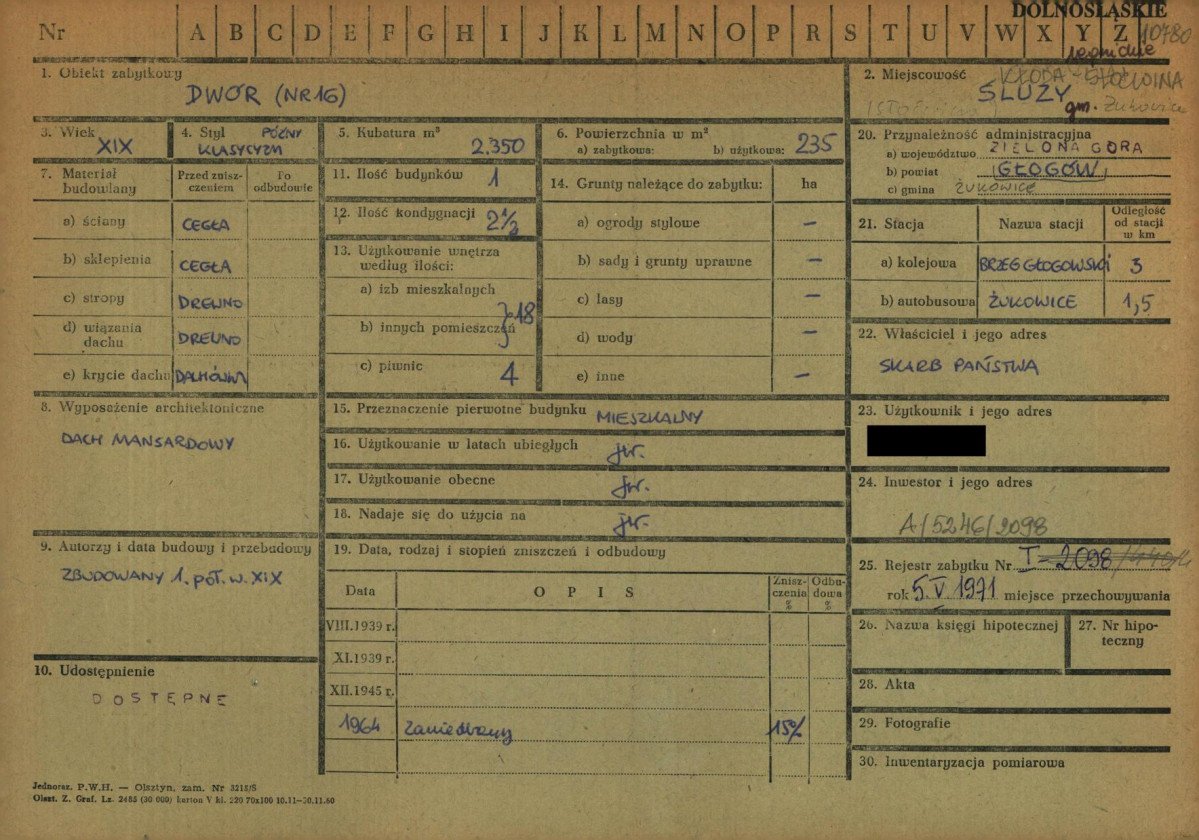 DOLNOŚLĄSKIE
Nr A B C D E F G H I J K L M N O P R S T U V W X Y Z 10780
1. Obiekt zabytkowy
DWÓR (NR 16)
2. Miejscowość
KŁODA - STOCWINA
SŁUZY gm. Żukowice
3. Wiek
XIX
4. Styl PÓŹNY
KLASYCYZM
5. Kubatura m³
2.350
6. Powierzchnia w m²
a) zabytkowa: b) użytkowa: 235
7. Materiał budowlany
Przed znisz-
czeniem
Po
odbudowie
a) ściany CEGŁA
b) sklepienia CEGŁA
c) stropy DREWNO
d) wiązania
dachu DREWNO
e) krycie dachu DACHÓWKA
8. Wyposażenie architektoniczne
DACH MANSARDOWY
9. Autorzy i data budowy i przebudowy
ZBUDOWANY 1. POŁ. W. XIX
10. Udostępnienie
DOSTĘPNE
11. Ilość budynków 1
12. Ilość kondygnacji 2 1/2
13. Użytkowanie wnętrza
według ilości:
a) izb mieszkalnych
b) innych pomieszczeń
} 18
c) piwnic 4
14. Grunty należące do zabytku: ha
a) ogrody stylowe —
b) sady i grunty uprawne —
c) lasy —
d) wody —
e) inne —
15. Przeznaczenie pierwotne budynku MIESZKALNY
16. Użytkowanie w latach ubiegłych jw.
17. Użytkowanie obecne jw.
18. Nadaje się do użycia na jw.
19. Data, rodzaj i stopień zniszczeń i odbudowy
Data OPIS Znisz-
czenia
% Odbu-
dowa
%
VIII.1939 r.
XI.1939 r.
XII.1945 r.
1964 Zaniedbany 15%
20. Przynależność administracyjna
a) województwo ZIELONA GÓRA
b) powiat GŁOGÓW
c) gmina ŻUKOWICE
21. Stacja Nazwa stacji Odległość
od stacji
w km
a) kolejowa BRZEG GŁOGOWSKI 3
b) autobusowa ŻUKOWICE 1,5
22. Właściciel i jego adres
SKARB PAŃSTWA
23. Użytkownik i jego adres
24. Inwestor i jego adres
A/5246/2098
25. Rejestr zabytku Nr I-2098
rok 5.V 1971 miejsce przechowywania
26. Nazwa księgi hipotecznej
27. Nr hipo-
teczny
28. Akta
29. Fotografie
30. Inwentaryzacja pomiarowa
Jednoraz. P.W.H. — Olsztyn, zam. Nr 3215/S
Olszt. Z. Graf. Lz. 2455 (30 000) karton V kl. 220 70x100 10.11—30.11.60